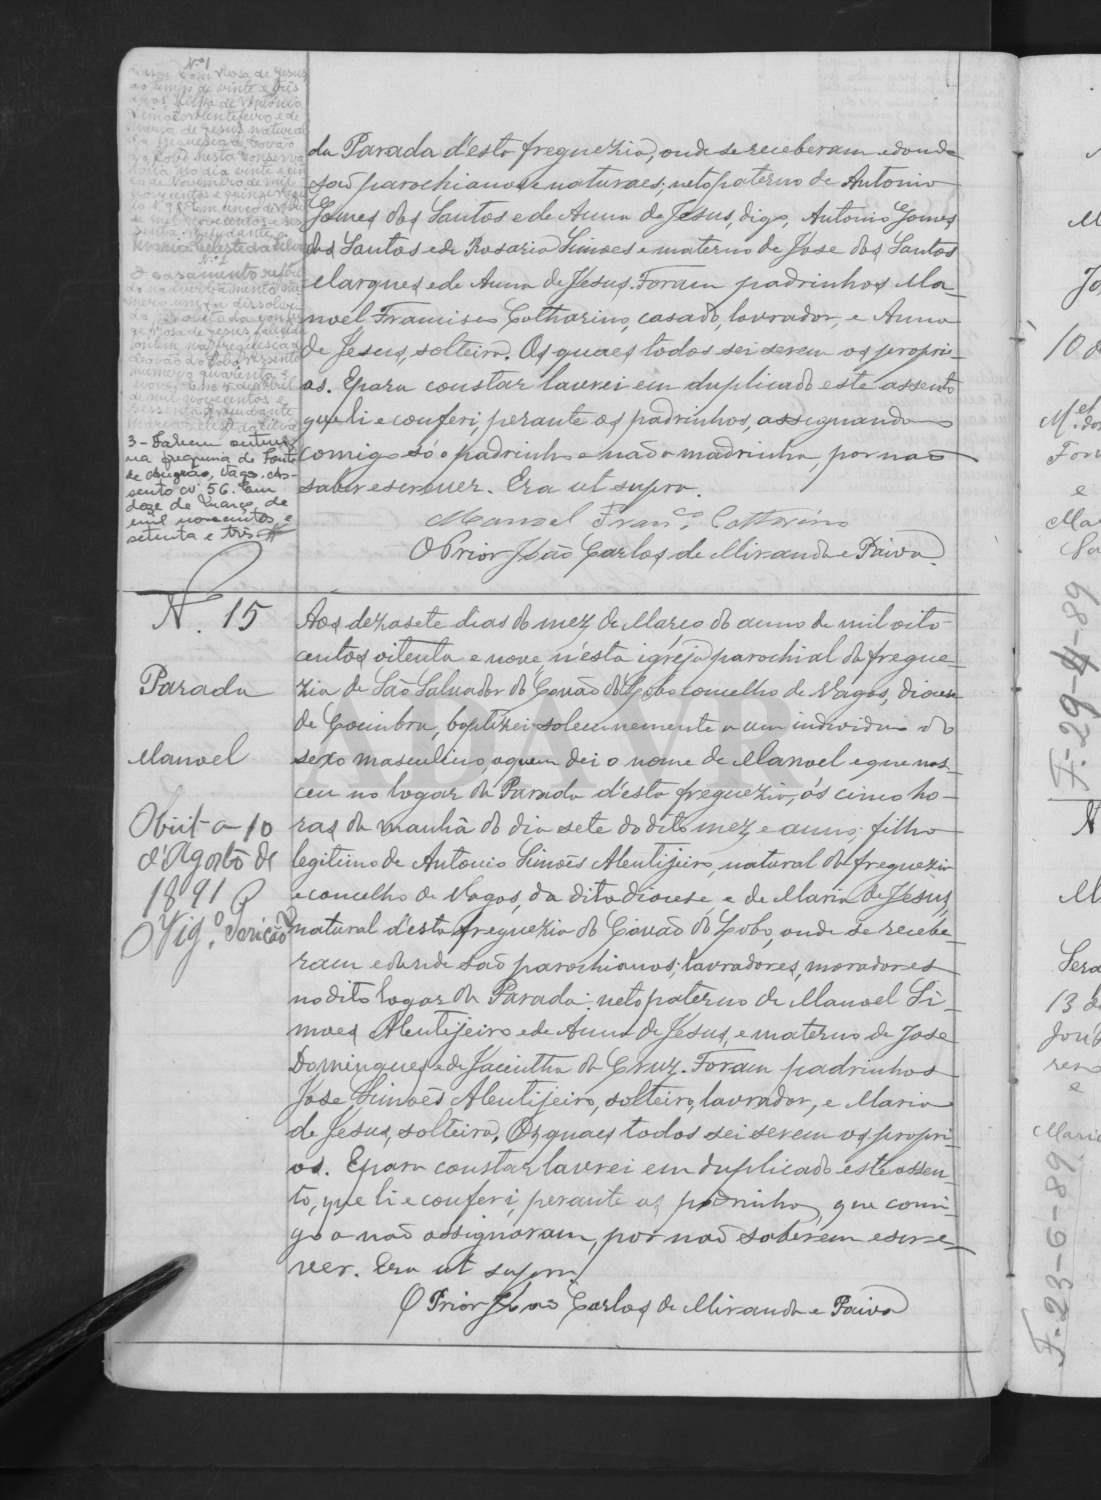 Nº 1
Casou com Rosa de Jesus
de vinte e três
anos filha de António
e de
de Jesus natural
da freguesia de Covão
do Lobo nesta
no dia vinte e
de Novembro de mil
novecentos e
de mil novecentos e
Ajudante
Maria Celeste da Silva
Nº 2
O casamento
do no averbamento nú-
mero um foi dissolvi-
do por óbito da conju-
ge Rosa de Jesus falecida
ontem na freguesia de
Covão do Lobo assento
número quarenta e
nove
de mil novecentos e
sessenta Ajudante
Maria Celeste da Silva
3 - Faleceu ontem
na freguesia de Ponte
de Angeão, Vagos. As-
sento nº 56. Em
doze de Março de
mil novecentos e
setenta e três.
da Parada d'esta freguezia, onde se receberam e donde
são parochianos e naturaes; neto paterno de Antonio
Gomes dos Santos e de Anna de Jesus, digo, Antonio Gomes
dos Santos e de Rosaria Simoes e materno de Jose dos Santos
Marques e de Anna de Jesus. Foram padrinhos Ma-
noel Francisco Catharino, casado, lavrador, e Anna
de Jesus, solteira. Os quaes todos sei serem os propri-
os. E para constar lavrei em duplicado este assento
que li e conferi, perante os padrinhos, assignando
comigo só o padrinho e não a madrinha, por não
saber escrever. Era ut supra.
Manoel Fran.co Catharino
O Prior João Carlos de Miranda e Paiva.
N. 15
Parada
Manoel
Obiit a 10
d'Agosto de
1891
O Vig.º
Aos dezasete dias do mez de Março do anno de mil oito
centos oitenta e nove, n'esta igreja parochial da fregue-
zia de São Salvador do Covão do Lobo concelho de Vagos, diocese
de Coimbra, baptizei solemnemente a um individuo do
sexo masculino, a quem dei o nome de Manoel e que nas-
ceu no logar da Parada d'esta freguezia, ás cinco ho-
ras da manhã do dia sete do dito mez e anno; filho
legitimo de Antonio Simoẽs Alentijeiro, natural da freguezia
e concelho de Vagos, da dita diocese, e de Maria de Jesus,
natural d'esta freguezia do Covão do Lobo, onde se recebe-
ram e donde são parochianos; lavradores, moradores
no dito logar da Parada: neto paterno de Manoel Si-
moes Alentijeiro e de Anna de Jesus, e materno de Jose
Domingues e de Jacintha da Cruz. Foram padrinhos
Jose Simoẽs Alentijeiro, solteiro, lavrador, e Maria
de Jesus, solteira. Os quaes todos sei serem os propri-
os. E para constar lavrei em duplicado este assen-
to, que li e conferi, perante os padrinhos, que comi-
go o não assignaram, por não saberem escre-
ver. Era ut supra.
O Prior João Carlos de Miranda e Paiva
ADAVR
10 d
M.el dos
e
F. 29-4-89
13 d
e
Maria
F. 23-6-89